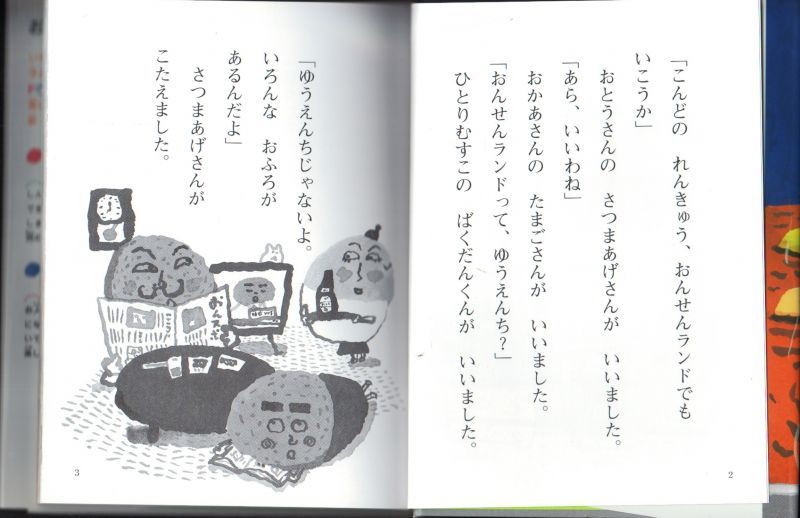 「こんどの　れんきゅう、おんせんランドでも
いこうか」
おとうさんの　さつまあげさんが　いいました。
「あら、いいわね」
おかあさんの　たまごさんが　いいました。
「おんせんランドって、ゆうえんち？」
ひとりむすこの　ばくだんくんが　いいました。
2
「ゆうえんちじゃないよ。
いろんな　おふろが
あるんだよ」
さつまあげさんが
こたえました。
NEWS
3